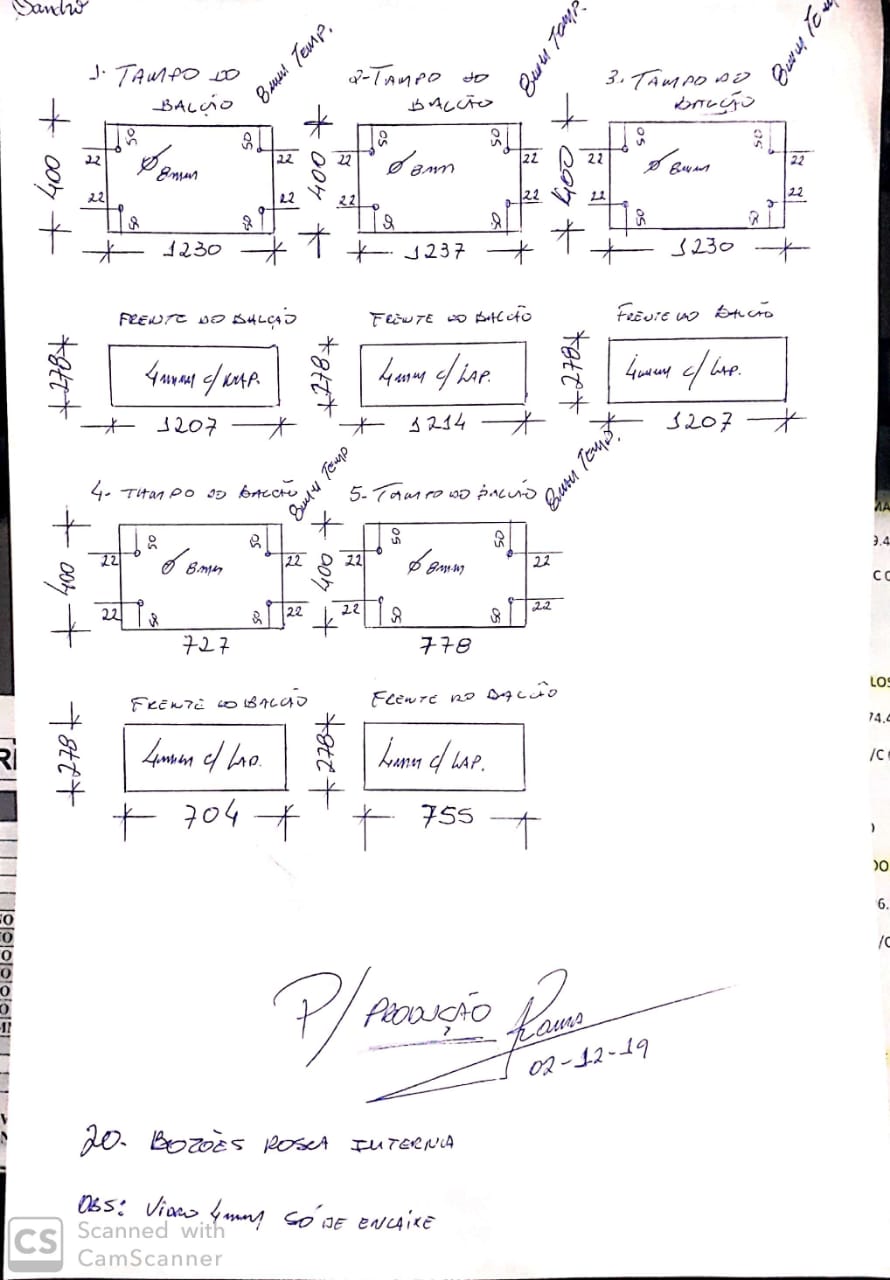 Sandro
1. TAMPO DO BALCÃO 8mm Temp.
400
50 50
22 22
Ø 8mm
22 22
50 50
1230
2-TAMPO DO BALCÃO 8mm Temp.
400
50 50
22 22
Ø 8mm
22 22
50 50
1237
3. TAMPO DO BALCÃO 8mm Temp
400
50 50
22 22
Ø 8mm
22 22
50 50
1230
FRENTE DO BALCÃO
278
4mm c/ LAP.
1207
FRENTE DO BALCÃO
278
4mm c/ LAP.
1214
FRENTE DO BALCÃO
278
4mm c/ LAP.
1207
4- TAMPO DO BALCÃO 8mm Temp
400
50 50
22 22
Ø 8mm
22 22
50 50
727
5-TAMPO DO BALCÃO 8mm Temp.
400
50 50
22 22
Ø 8mm
22 22
50 50
778
FRENTE DO BALCÃO
278
4mm c/ LAP.
704
FRENTE DO BALCÃO
278
4mm c/ LAP.
755
P/ PRODUÇÃO
02-12-19
20- BOTÕES ROSCA INTERNA
OBS: Vidro 4mm SÓ DE ENCAIXE
CS Scanned with
CamScanner